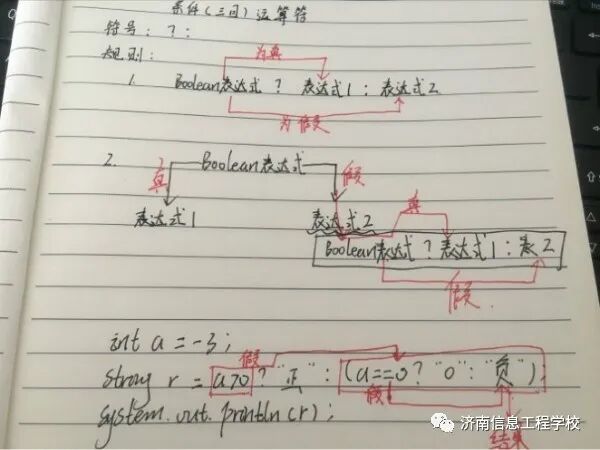 条件(三目)运算符
符号：？：
规则：
为真
1. Boolean表达式？表达式1：表达式2
为假
2. Boolean表达式
真 假
表达式1 表达式2
真
Boolean表达式？表达式1：表2
假
int a = -3;
假
strong r = a>0 ? "正" : (a==0 ? "0" : "负")
假
system.out.println(r);
结果
济南信息工程学校